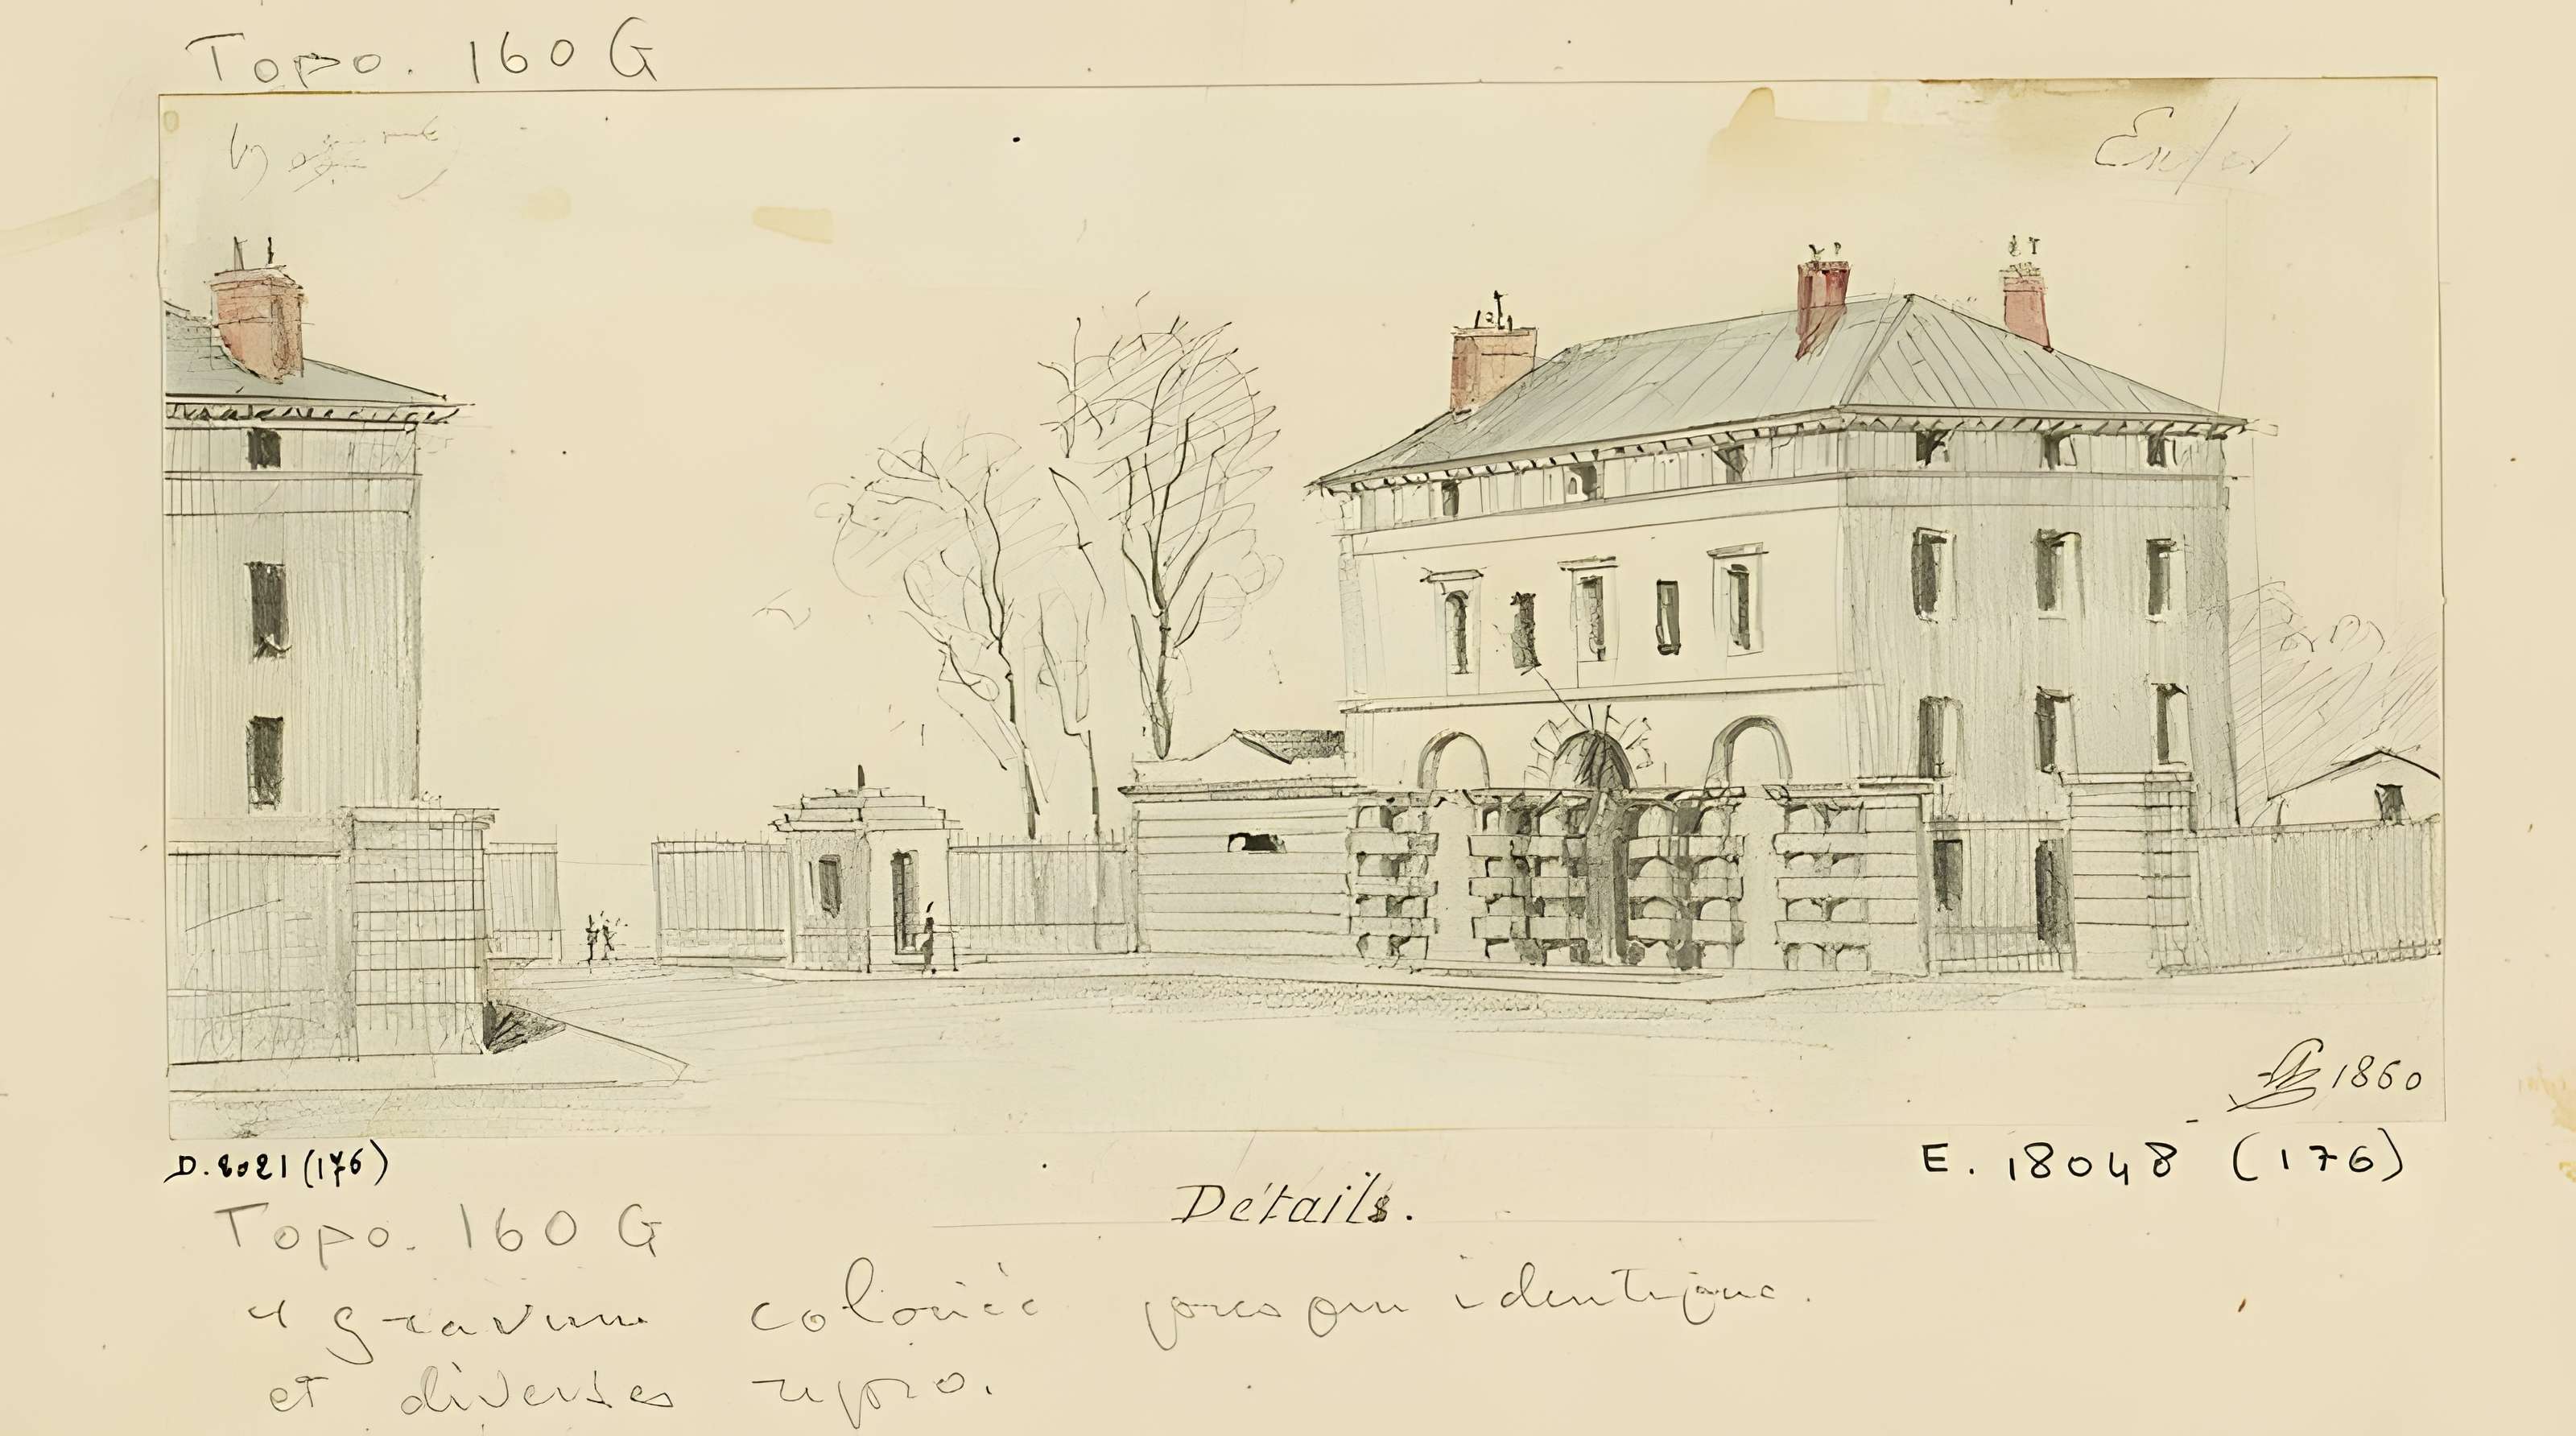 Topo. 160 G
Enfer
1860
D. 2021 (176)
E. 18048 (176)
Détails.
Topo. 160 G
gravure coloriée presque identique.
et diverses repro.